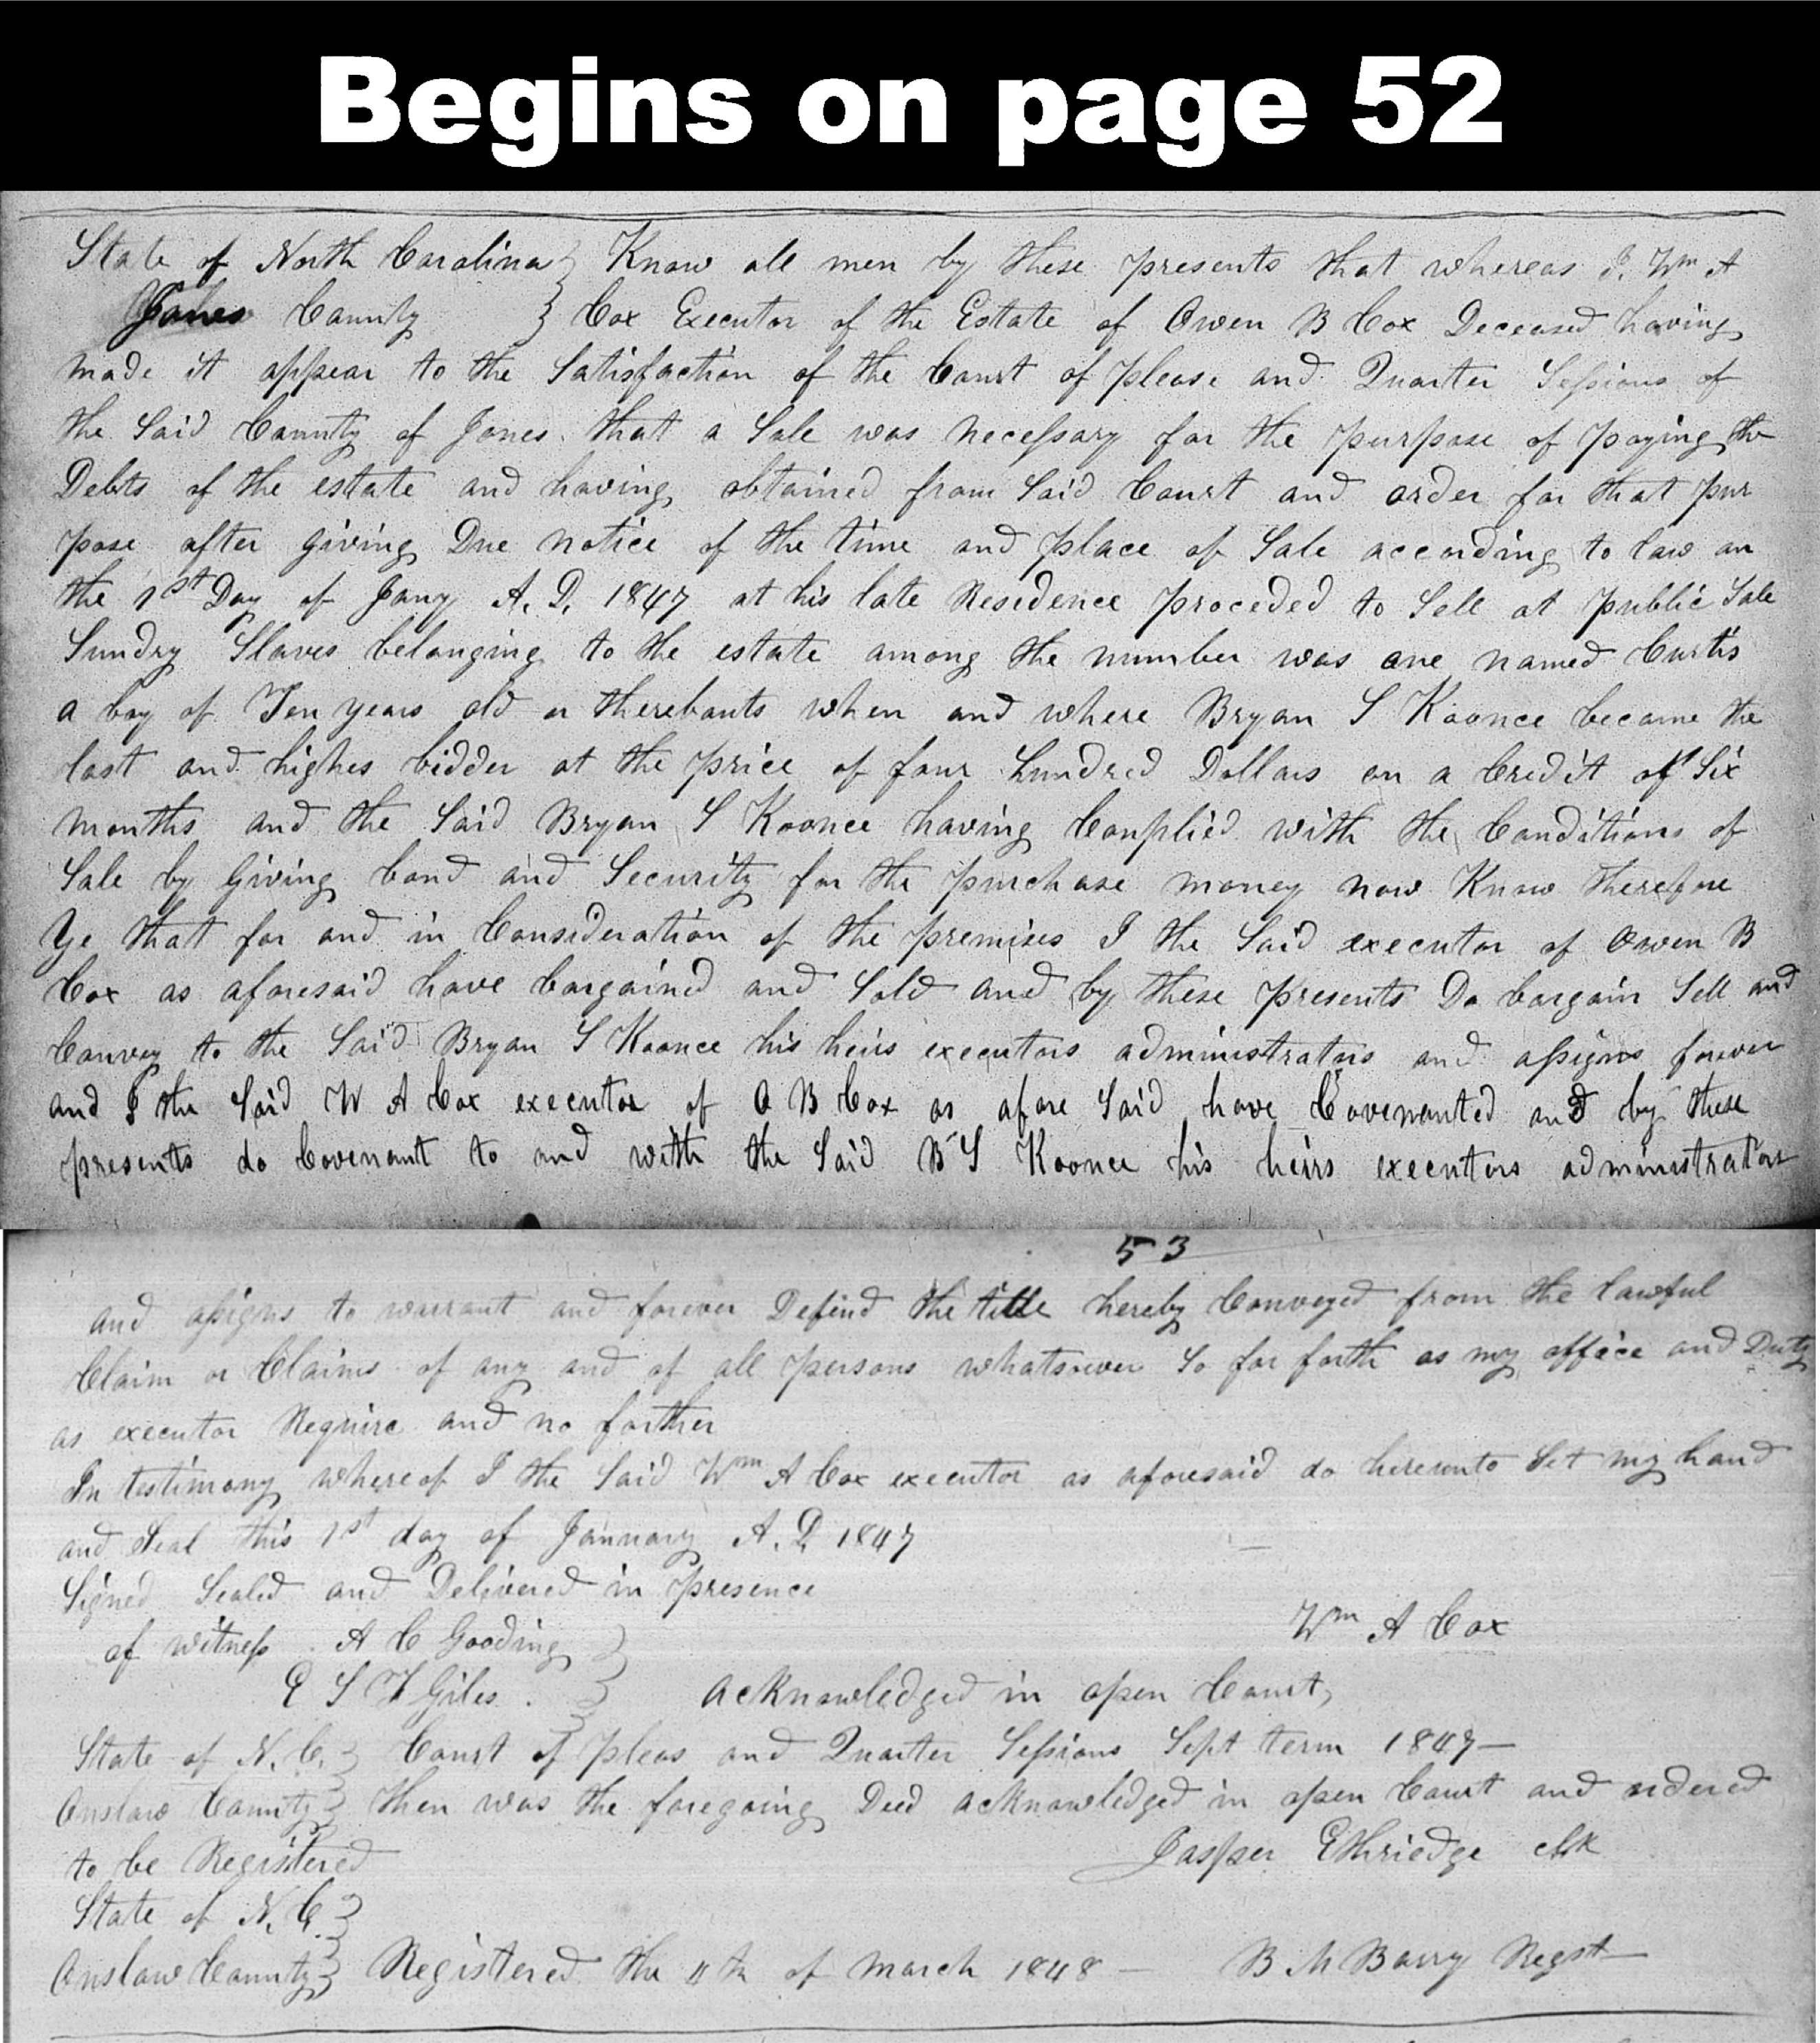 Begins on page 52
State of North Carolina } Know all men by these presents that whereas I. Wm A
Jones County } Cox Executor of the Estate of Owen B Cox Deceased having
made it appear to the Satisfaction of the Court of please and Quarter Sessions of
the Said County of Jones that a Sale was necessary for the purpose of paying the
Debts of the estate and having obtained from Said Court and order for that pur
pose after giving Due notice of the time and place of Sale according to law on
the 1st Day of Jany A. D. 1847 at his late Residence proceded to Sell at public Sale
Sundry Slaves belonging to the estate among the number was one named Curtis
a boy of Ten years old or therebouts when and where Bryan S Koonce became the
last and highes bidder at the price of four hundred Dollars on a Credit of Six
months and the Said Bryan S Koonce having Complied with the Conditions of
Sale by Giving bond and Security for the purchase money now Know therefore
Ye that for and in Consideration of the premises I the Said executor of Owen B
Cox as aforesaid have bargained and Sold and by these presents Do bargain Sell and
Convey to the Said Bryan S Koonce his heirs executors administrators and assigns forever
and I the Said W A Cox executor of O B Cox as afore Said have Covenanted and by these
presents do Covenant to and with the Said B S Koonce his heirs executors administrators
53
and assigns to warrant and forever Defend the title hereby Conveyed from the lawful
Claim or Claims of any and of all persons whatsoever So far forth as my office and Duty
as executor Require and no farther
In testimony whereof I the Said Wm A Cox executor as aforesaid do hereunto Set my hand
and Seal this 1st day of January A. D. 1847
Signed Sealed and Delivered in presence
of witness A C Gooding } Wm A Cox
E S F Giles. } acknowledged in open Court,
State of N. C. } Court of pleas and Quarter Sessions Sept term 1847—
Onslow County } then was the foregoing Deed acknowledged in open Court and ordered
to be Registered Jasper Ethriedge Clk
State of N. C. }
Onslow County } Registered the 11th of March 1848 — B M Barry Regst